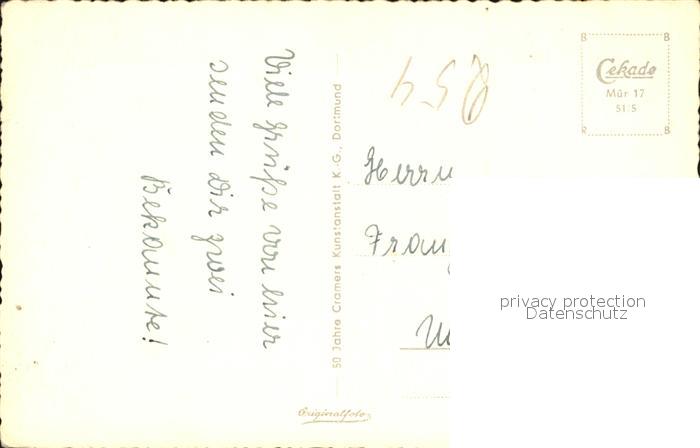 Viele Grüße von hier
senden Dir zwei
Bekannte!
50 Jahre Cramers Kunstanstalt K.-G., Dortmund
Originalfoto
Cekade
Mür 17
51 5
B B
R B
Herrn
Franz
privacy protection
Datenschutz